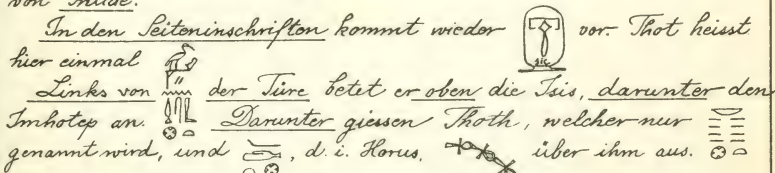 von Philae.
In den Seiteninschriften kommt wieder sic vor. Thot heisst
hier einmal
Links von der Türe betet er oben die Isis, darunter den
Imhotep an. Darunter giessen Thoth, welcher nur
genannt wird, und , d. i. Horus, über ihm aus.